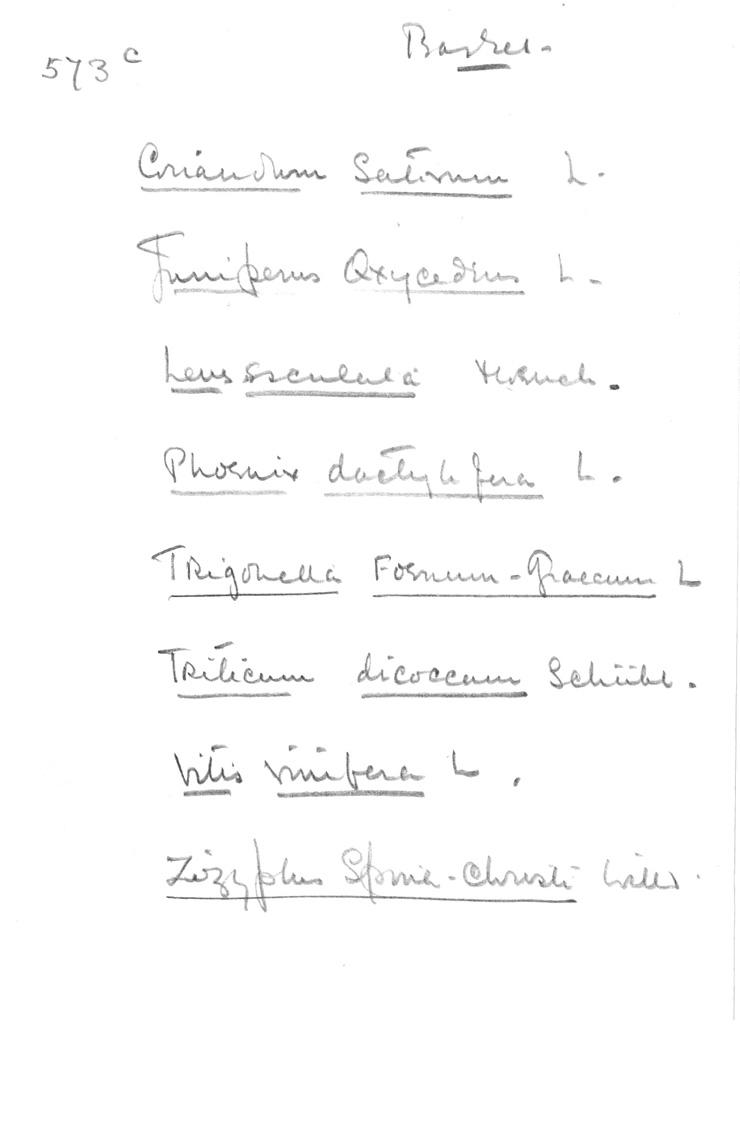 573 c
Basket.
Coriandrum Sativum L.
Juniperus Oxycedrus L.
Lens esculenta Moench.
Phoenix dactylifera L.
Trigonella Foenum-Graecum L
Triticum dicoccum Schübl.
Vitis vinifera L.
Zizyphus Spina-Christi Willd.